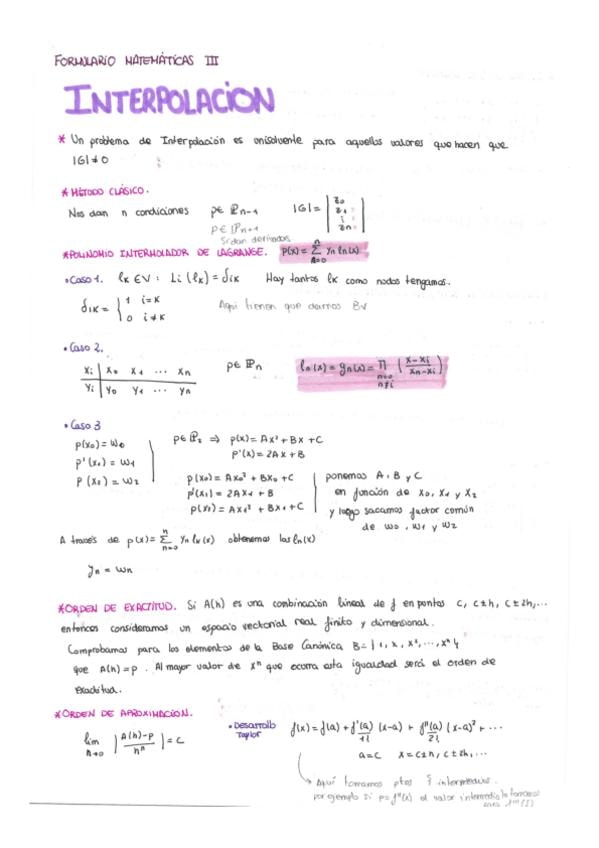 FORMULARIO MATEMÁTICAS III
INTERPOLACION
* Un problema de Interpolación es unisolvente para aquellos valores que hacen que
|G| ≠ 0
* MÉTODO CLÁSICO.
Nos dan n condiciones p∈ ℙn-1 |G| =
p∈ ℙn+1
Si dan derivadas
*POLINOMIO INTERPOLADOR DE LAGRANGE. P(x) = Σ yn ln(x)
• Caso 1. lk ∈ V : Li (lk) = δik Hay tantos lk como nodos tengamos.
δik = { 1 i=k
0 i≠k
Aquí tienen que darnos BV
• Caso 2.
xi | x0 x1 ... xn
yi | y0 y1 ... yn
p∈ ℙn ln(x) = gn(x) = Π (x-xi / xn-xi)
n=0
n≠i
• Caso 3
p(x0) = w0
p'(x1) = w1
p(x2) = w2
p∈ ℙ2 ⇒ p(x) = Ax² + Bx + C
p'(x) = 2Ax + B
p(x0) = Ax0² + Bx0 + C
p'(x1) = 2Ax1 + B
p(x2) = Ax1² + Bx1 + C
ponemos A, B y C
en función de x0, x1 y x2
y luego sacamos factor común
de w0, w1 y w2
A través de p(x) = Σ yn lk(x) obtenemos las ln(x)
n=0
yn = wn
*ORDEN DE EXACTITUD. Si A(h) es una combinación lineal de f en puntos c, c±h, c±2h,...
entonces consideramos un espacio vectorial real finito y dimensional.
Comprobamos para los elementos de la Base Canónica B= {1, x, x², ..., xⁿ}
que A(h) = p. Al mayor valor de xⁿ que ocurra esta igualdad será el orden de
exactitud.
*ORDEN DE APROXIMACION.
lim |A(h)-p / hⁿ| = C
h→0
• Desarrollo
Taylor
f(x) = f(a) + f'(a)/1! (x-a) + f''(a)/2! (x-a)² + ...
a=c x = c±h, c±2h, ...
Aquí tomamos ptos ξ intermedios.
por ejemplo si p = f''(x) el valor intermedio lo tomamos